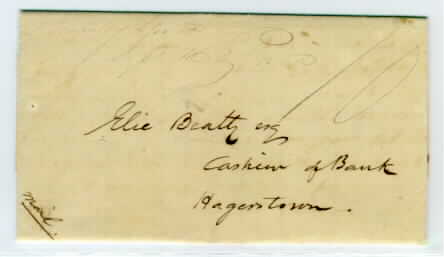 10
Elie Beatty esq
Cashier of Bank
Hagerstown.
Mail.